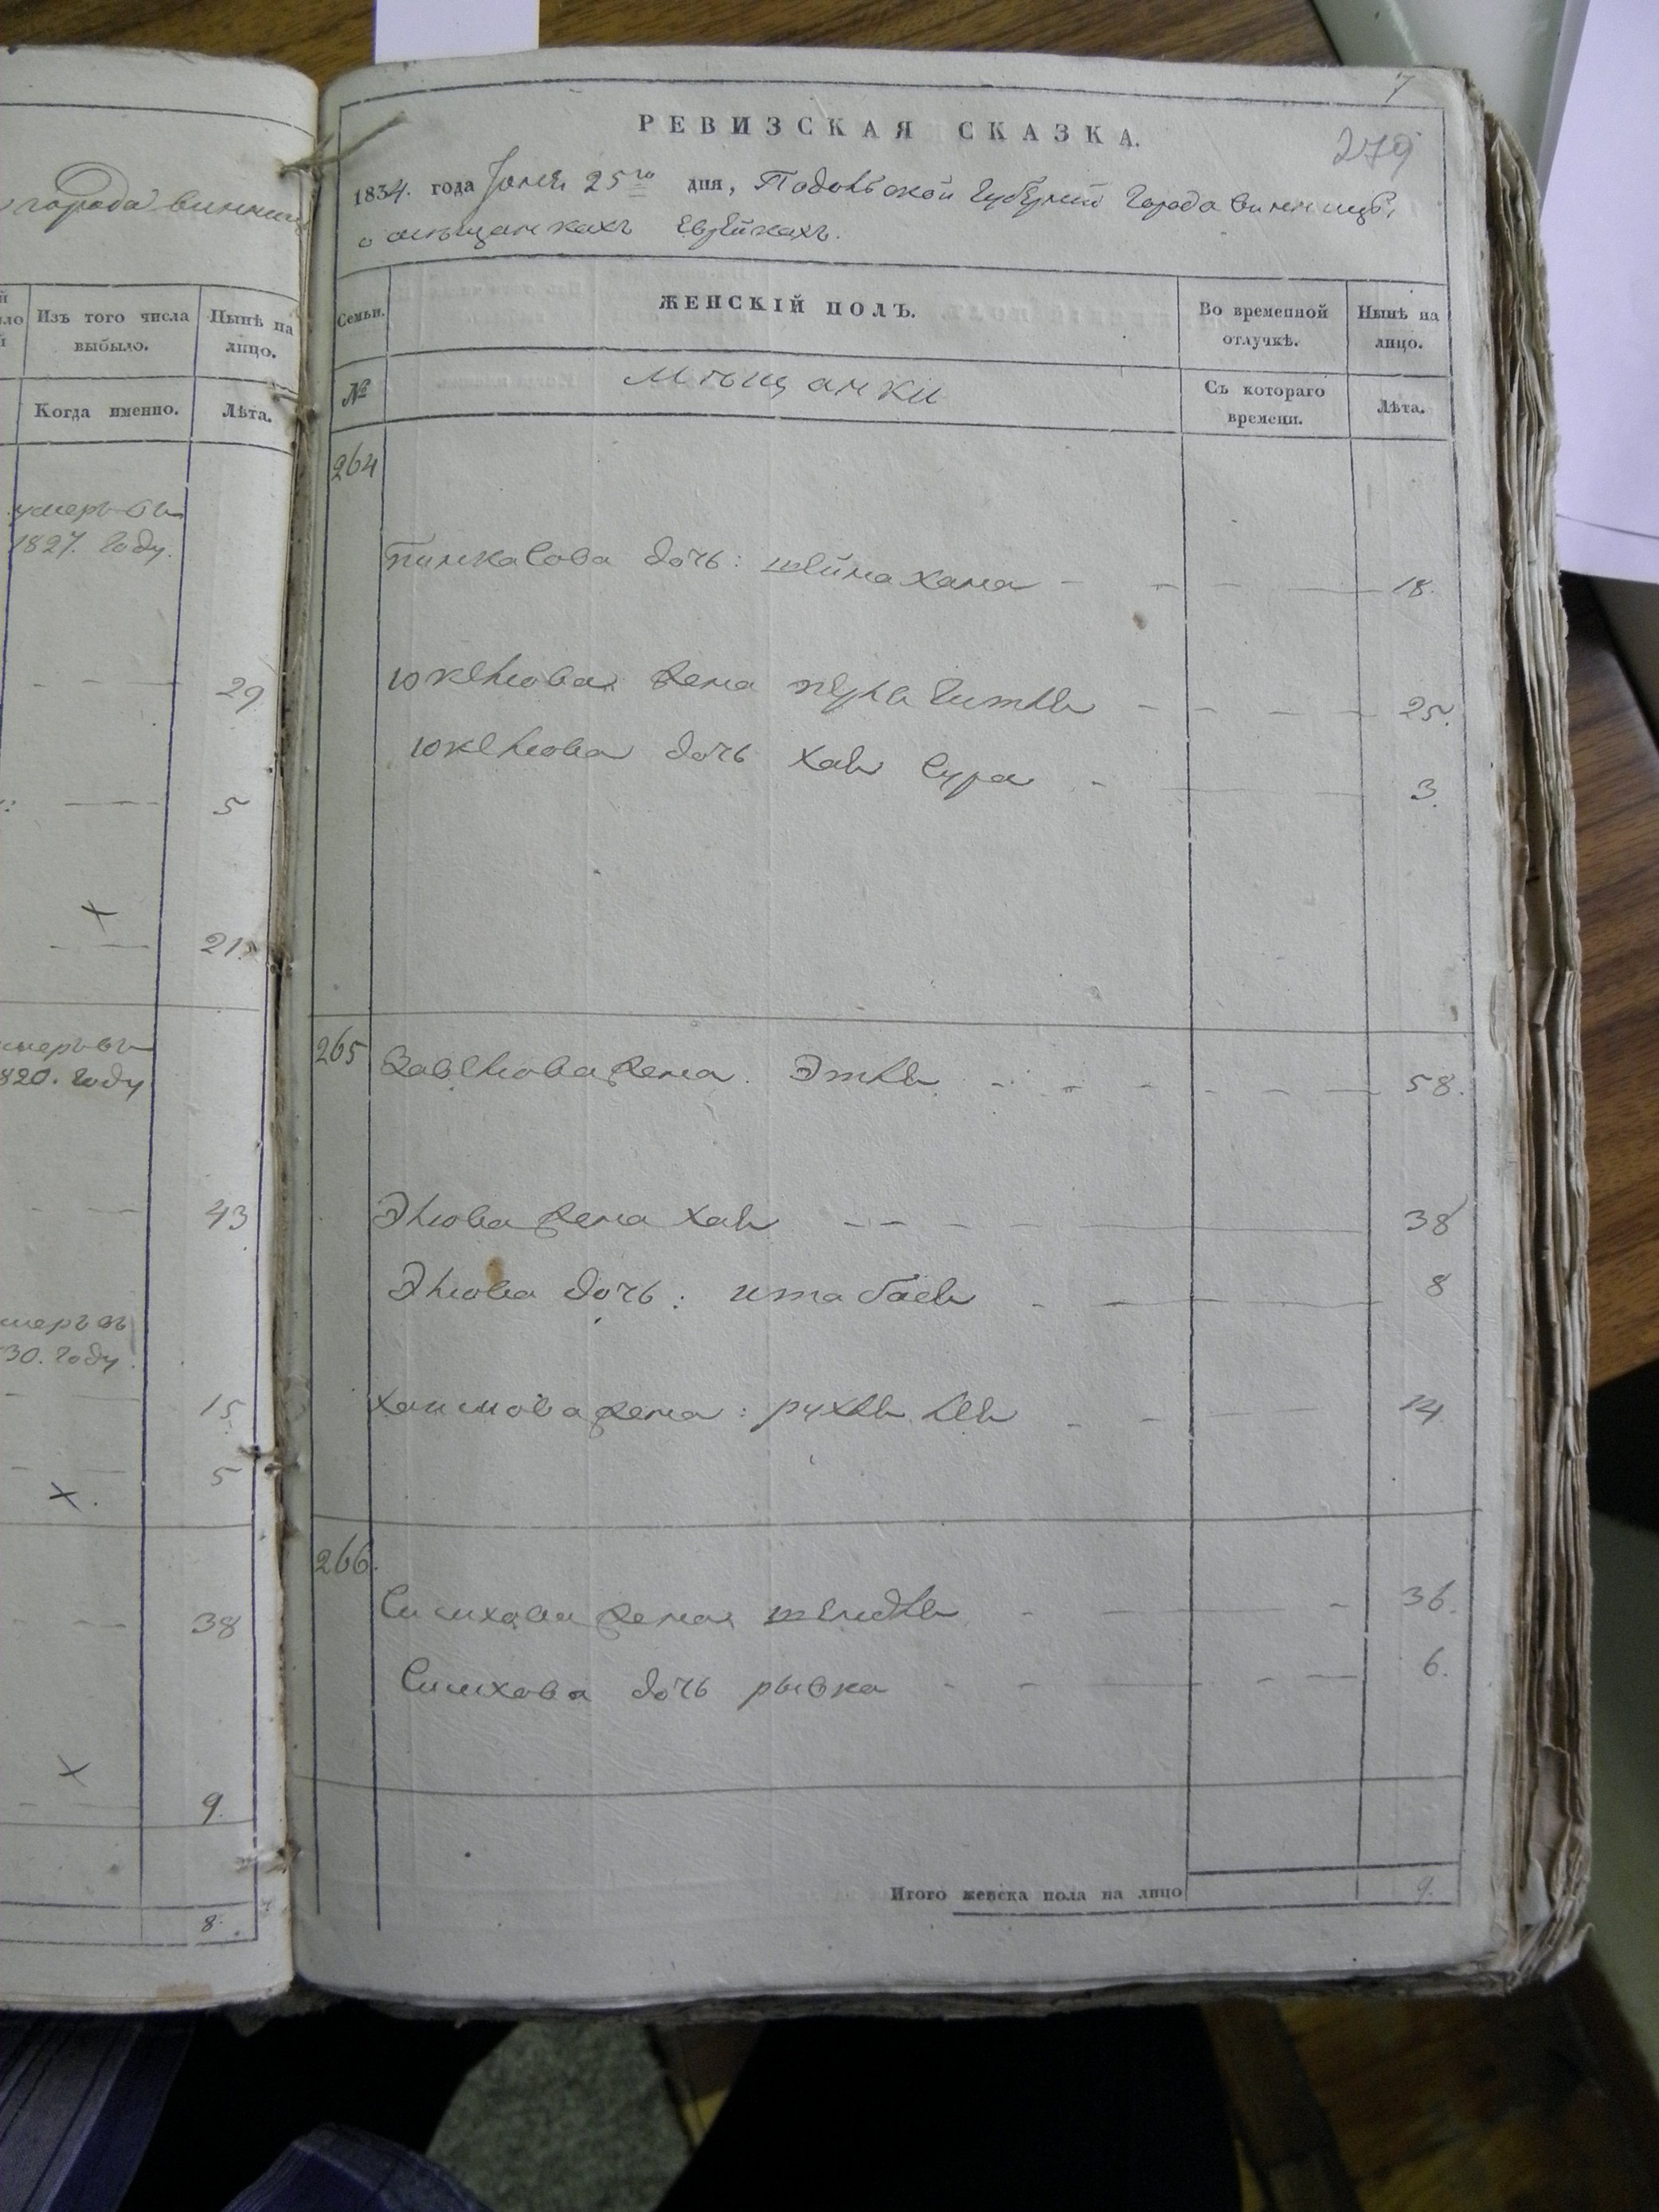 города винниц
Изъ того числа выбыло.
Нынѣ на лицо.
Когда именно.
Лѣта.
умеръ въ
1827. году.
29
5
21
умеръ въ
820. году
43
умеръ въ
30. году.
15
5
38
9.
8.
7
279
РЕВИЗСКАЯ СКАЗКА.
1834. года Юня 25го дня, Подольской Губерніи Города винницы,
о мѣщанкахъ Еврейкахъ.
Семьи.
ЖЕНСКІЙ ПОЛЪ.
Во временной отлучкѣ.
Нынѣ на лицо.
№
мѣщанки
Съ котораго времени.
Лѣта.
264
Пинкасова дочь: шейна хана 18.
Юкелева жена перля гитля 25.
Юкелева дочь хая Сура 3.
265 жена Этля 58.
Элева жена хая 38
Элева дочь: ита бася 8
Хаимова жена: рухля лея 14
266.
жена шендля 36.
дочь рывка 6.
Итого женска пола на лицо 9.